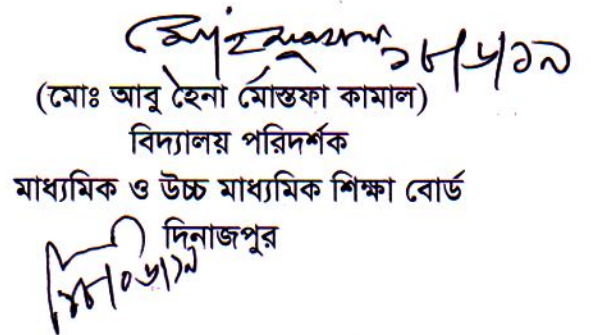 ১৮/৬/১৯
(মোঃ আবু হৈনা মোস্তফা কামাল)
বিদ্যালয় পরিদর্শক
মাধ্যমিক ও উচ্চ মাধ্যমিক শিক্ষা বোর্ড
দিনাজপুর